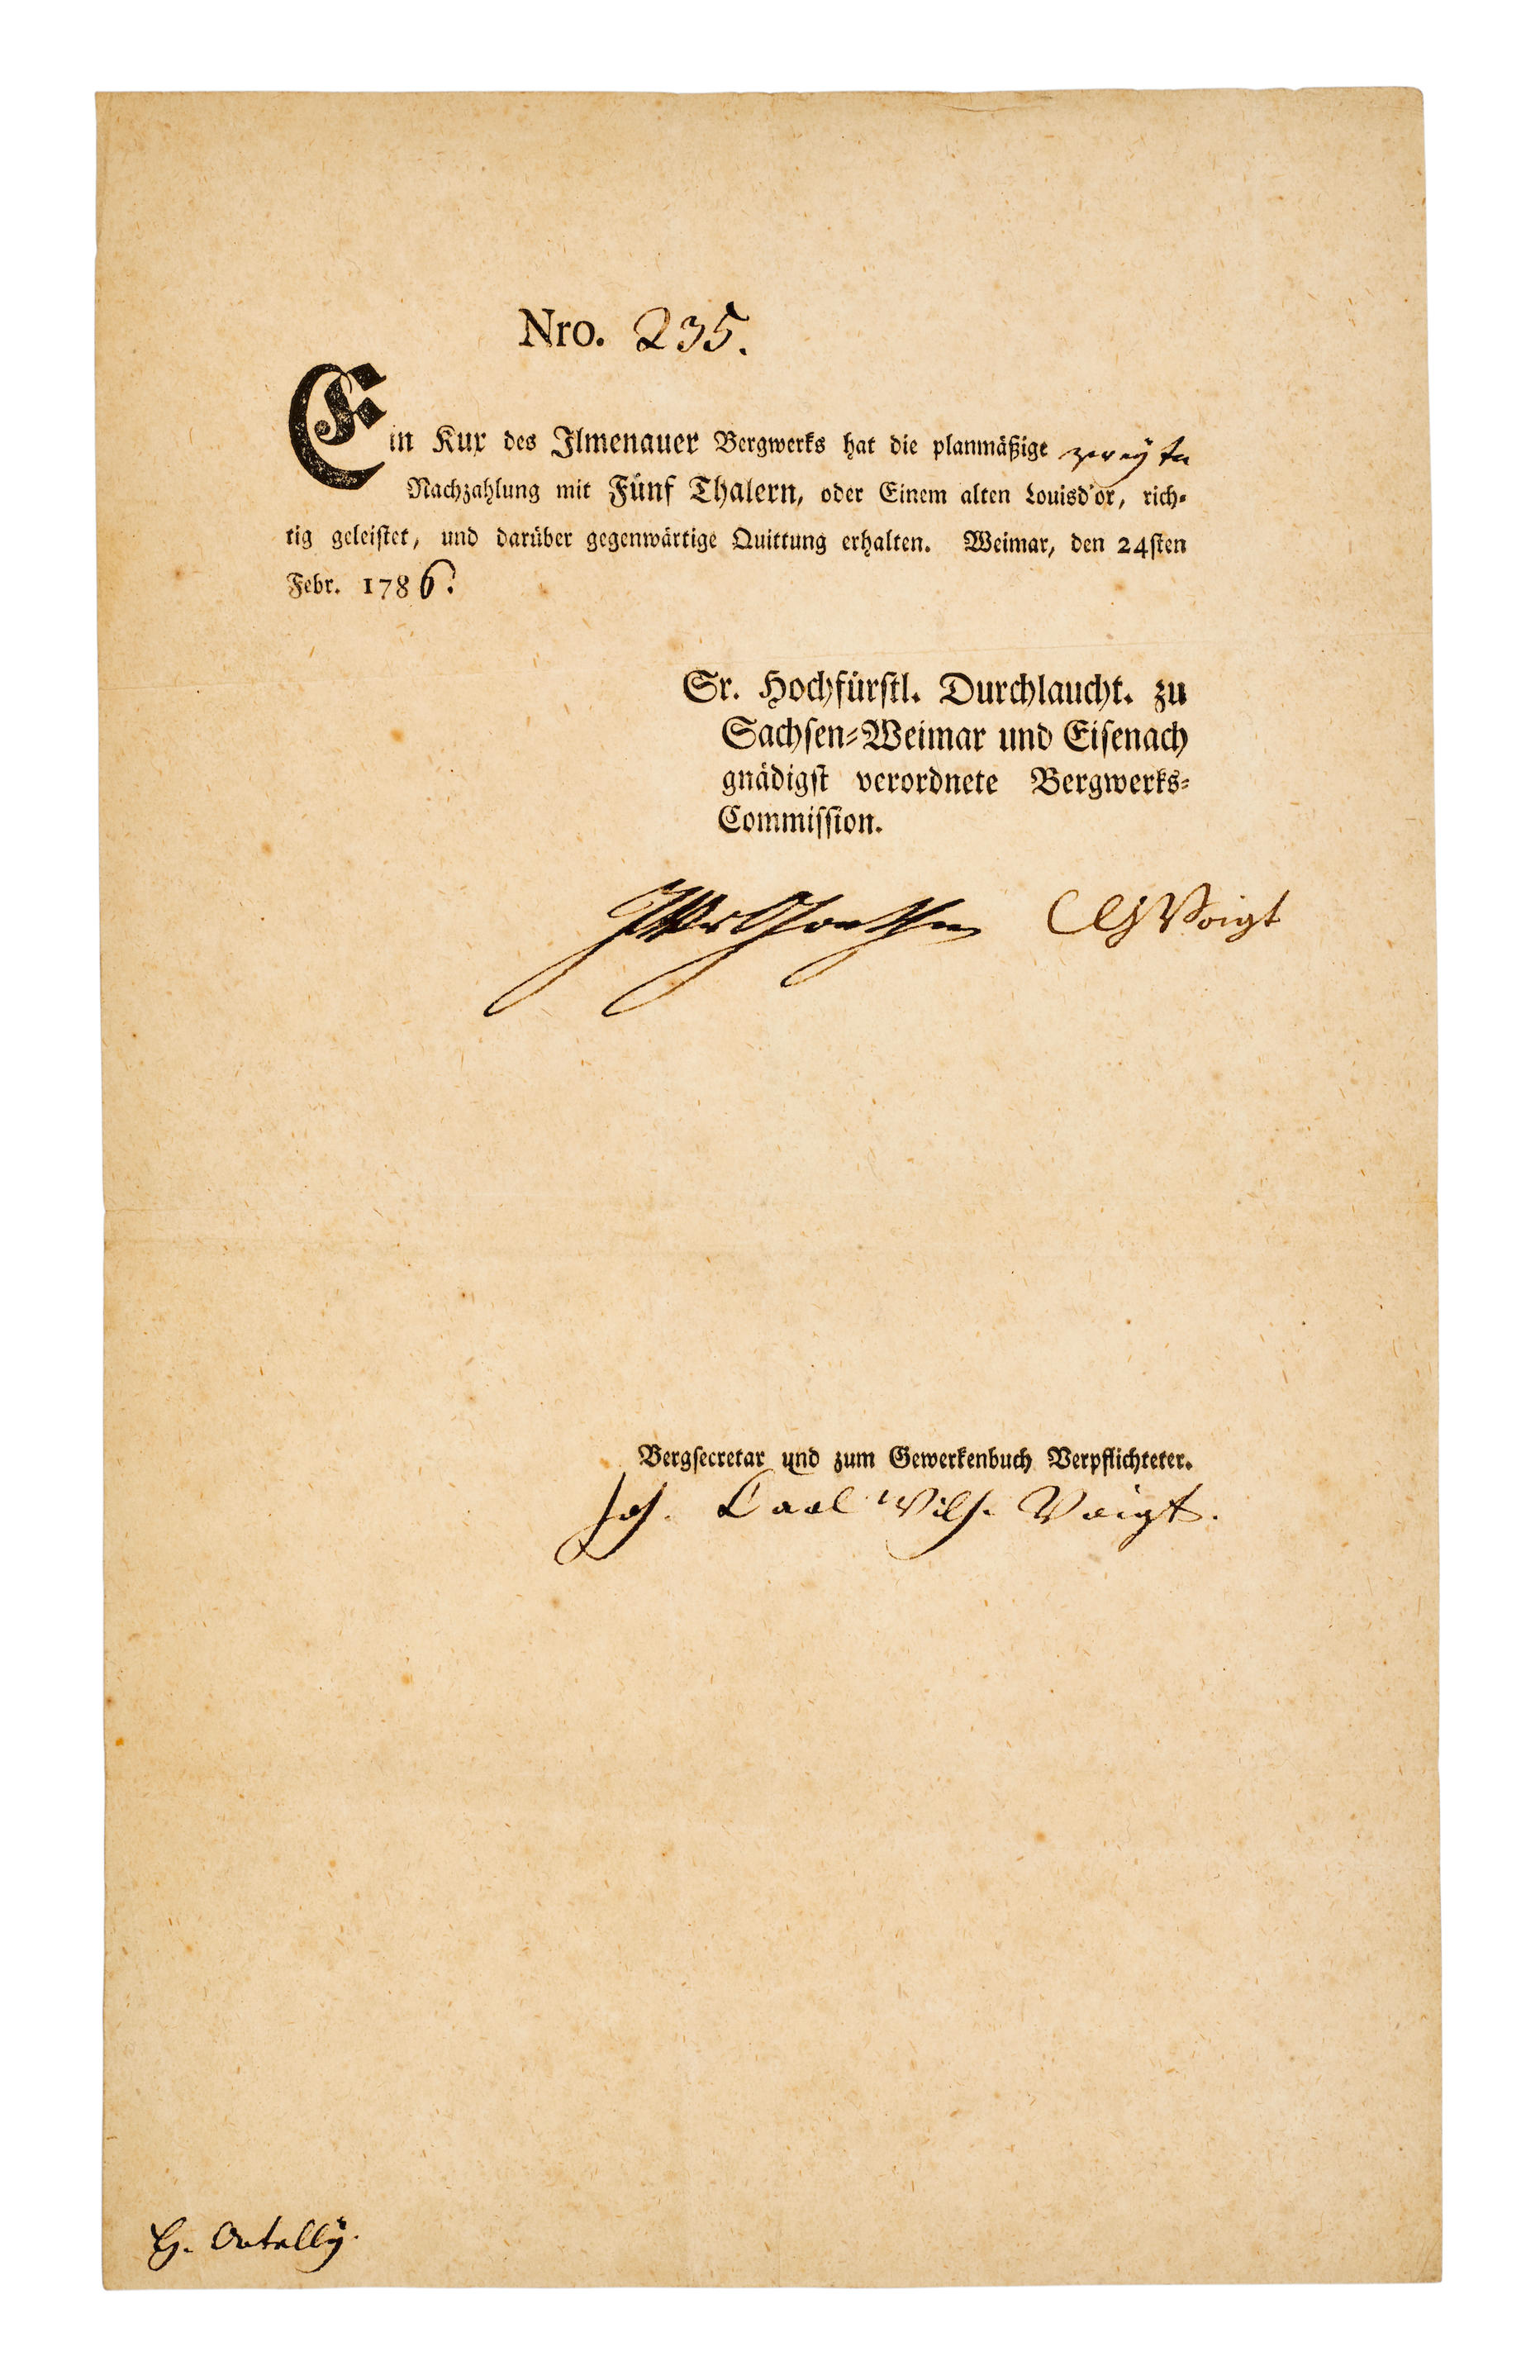 Nro. 235.
Ein Kux des Ilmenauer Bergwerks hat die planmäßige zweyte
Nachzahlung mit Fünf Thalern, oder Einem alten Louisd'or, rich-
tig geleistet, und darüber gegenwärtige Quittung erhalten. Weimar, den 24sten
Febr. 1786.
Sr. Hochfürstl. Durchlaucht. zu
Sachsen-Weimar und Eisenach
gnädigst verordnete Bergwerks-
Commission.
JWvGoethe CGVoigt
Bergsecretar und zum Gewerkenbuch Verpflichteter.
Joh. Carl Wilh. Voigt.